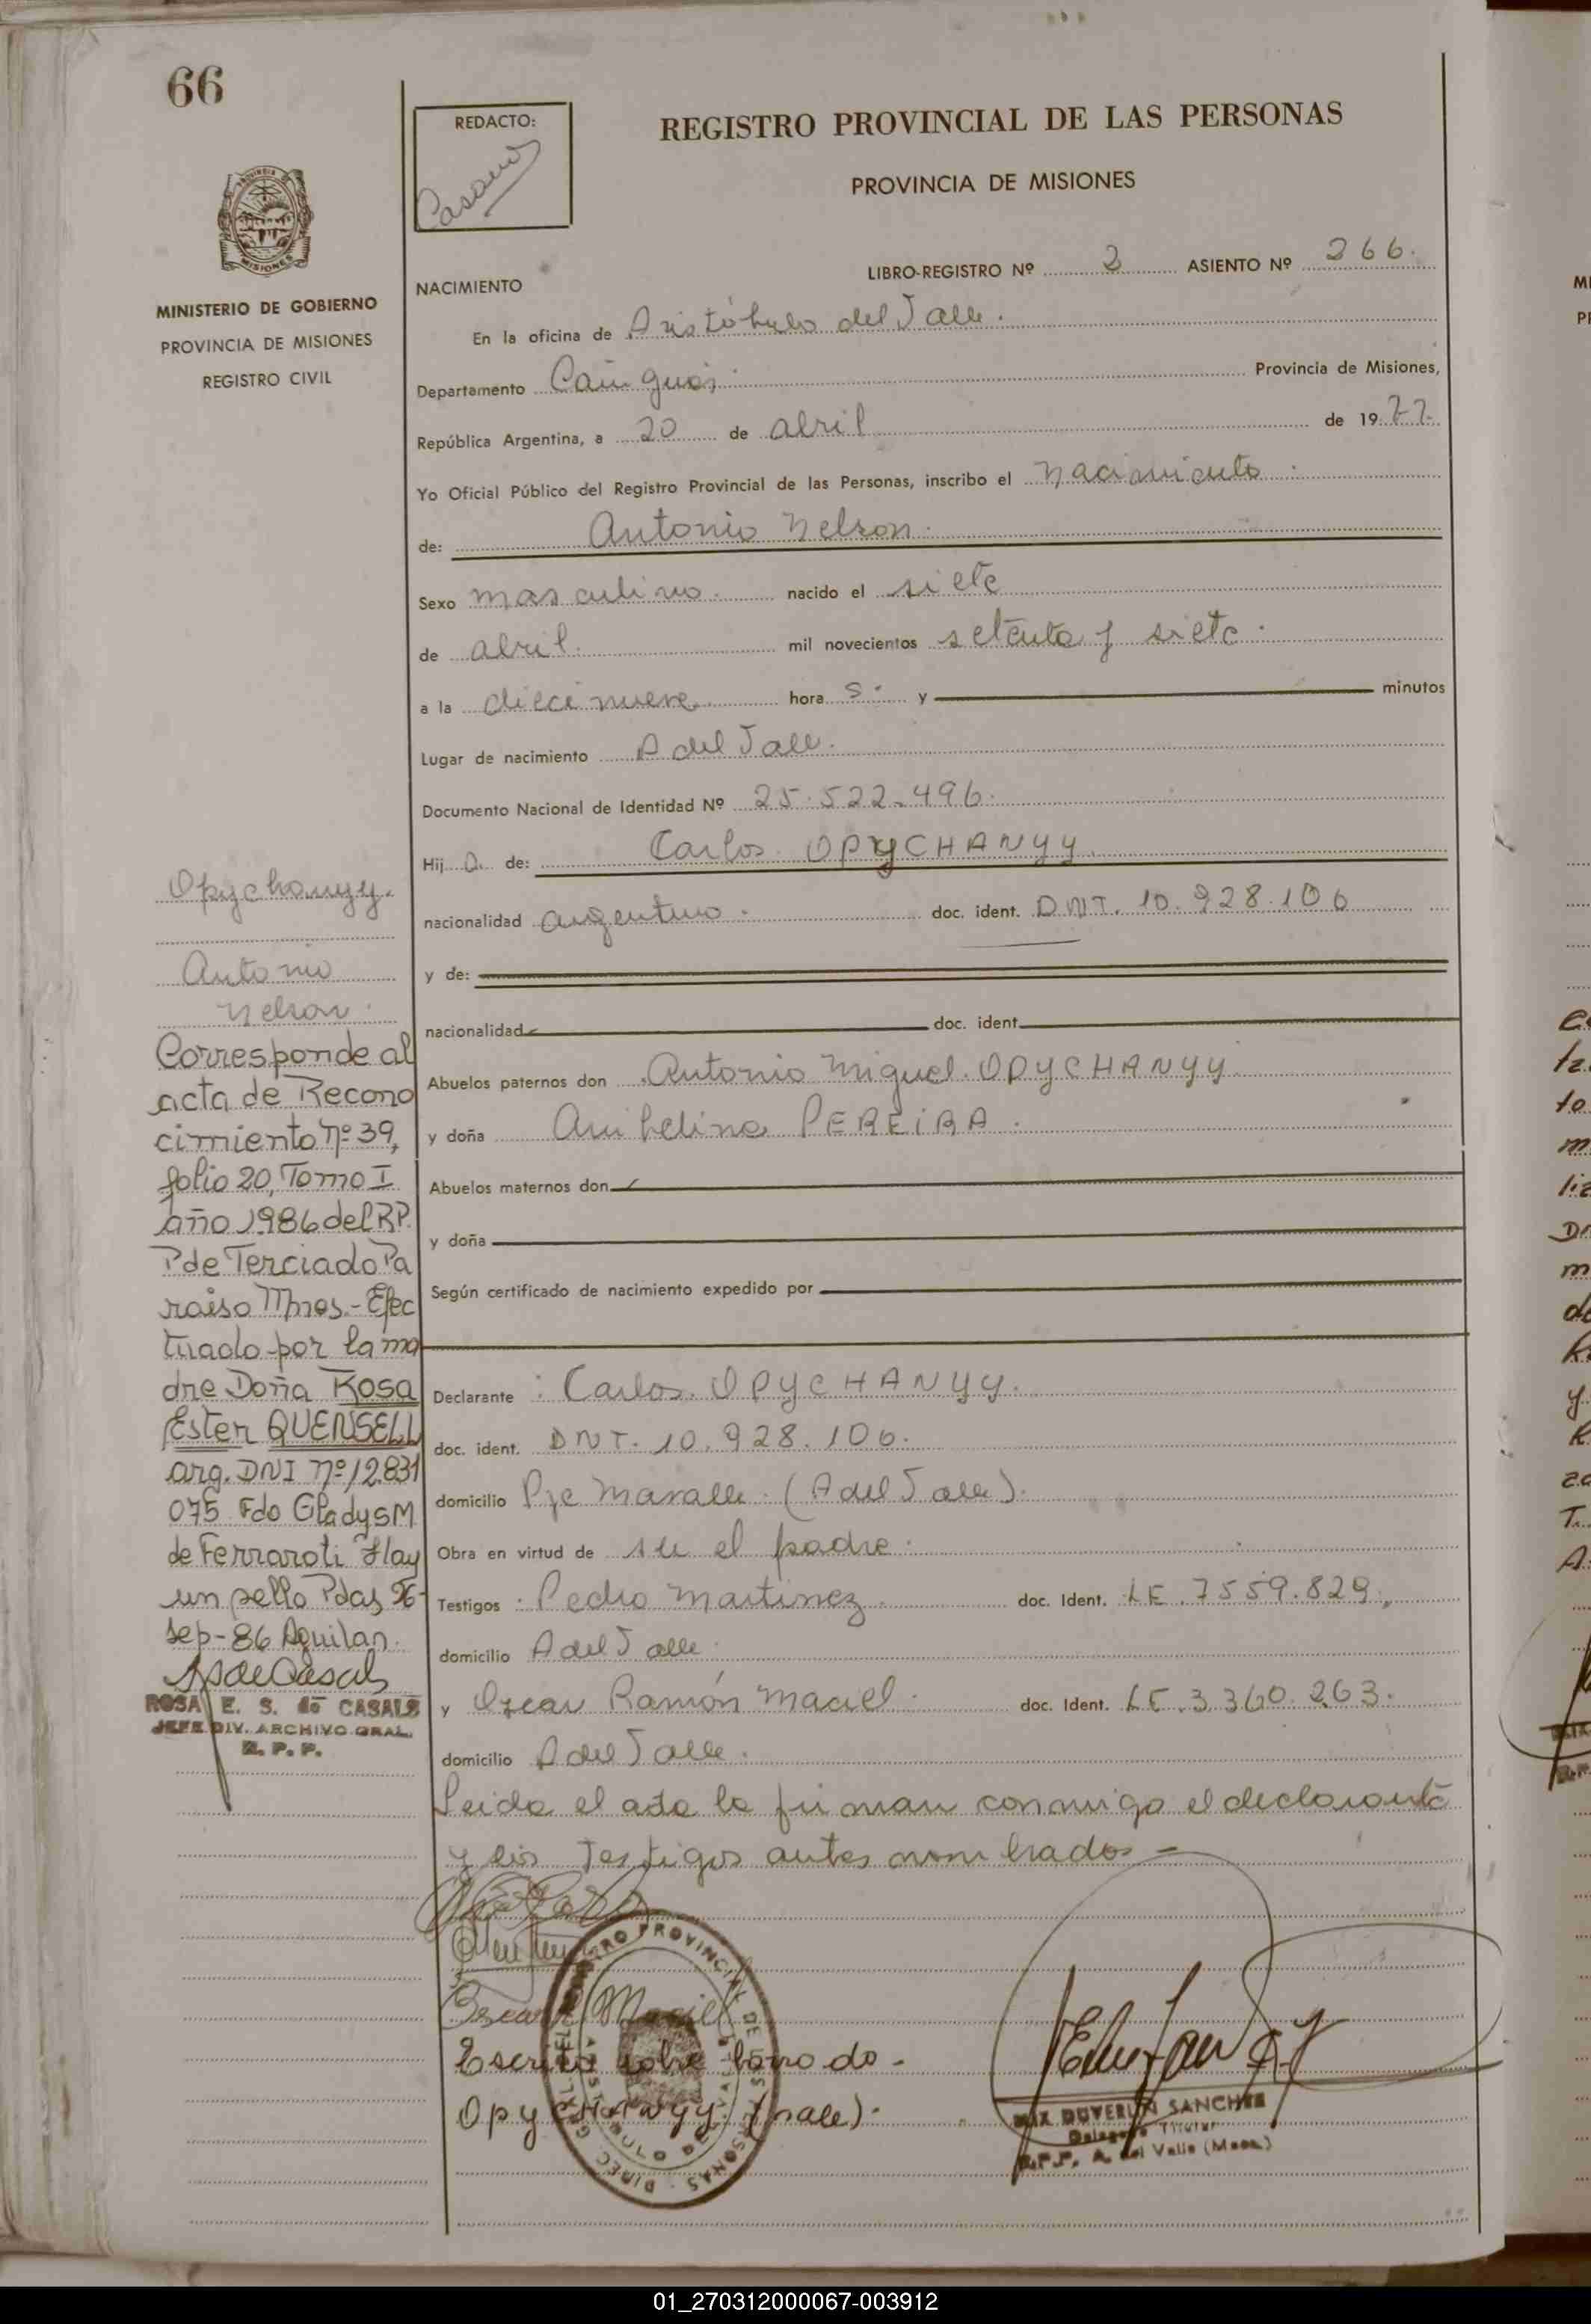 66
REDACTO:
REGISTRO PROVINCIAL DE LAS PERSONAS
PROVINCIA DE MISIONES
LIBRO-REGISTRO Nº 2 ASIENTO Nº 266.
NACIMIENTO
MINISTERIO DE GOBIERNO
PROVINCIA DE MISIONES
REGISTRO CIVIL
En la oficina de Aristóbulo del Valle.
Departamento Cainguás. Provincia de Misiones,
República Argentina, a 20 de abril de 1977.
Yo Oficial Público del Registro Provincial de las Personas, inscribo el nacimiento
de: Antonio Nelson.
Sexo masculino. nacido el siete
de abril. mil novecientos setenta y siete.
a la diecinueve hora s. y minutos
Lugar de nacimiento A del Valle.
Documento Nacional de Identidad Nº 25.522.496.
Hij o de: Carlos OPYCHANYY.
nacionalidad argentino. doc. ident. DNI. 10.928.106
y de:
nacionalidad doc. ident.
Abuelos paternos don Antonio Miguel OPYCHANYY.
y doña PEREIRA.
Abuelos maternos don
y doña
Según certificado de nacimiento expedido por
Declarante : Carlos OPYCHANYY.
doc. ident. DNI. 10.928.106.
domicilio Pje (A del Valle).
Obra en virtud de su el padre.
Testigos : Pedro Martinez. doc. Ident. LE. 7559.829,
domicilio A del Valle.
y Oscar Ramón Maciel. doc. Ident. LE. 3.360.263.
domicilio A del Valle.
Leida el acta la firman conmigo el declarante
y los testigos antes nombrados -
Oscar Maciel
Escrito sobre borrado -
Opychanyy. (vale).
Opychanyy.
Antonio
Nelson.
Corresponde al
acta de Recono
cimiento nº 39,
folio 20, Tomo I
año 1986 del R.P.
P de Terciado Pa
raiso Mnes.- Efec
tuado por la ma
dre Doña Rosa
Ester QUENSELL
arg. DNI nº 12831
075 Fdo Gladys M
de Ferraroti Hay
un sello Pdas, 26-
Sep-86 Aguilar.
ROSA E. S. de CASALS
JEFE DIV. ARCHIVO GRAL.
R. P. P.
SANCHEZ
Delegado Titular
R.P.P. A. del Valle (Mnes.)
01_270312000067-003912